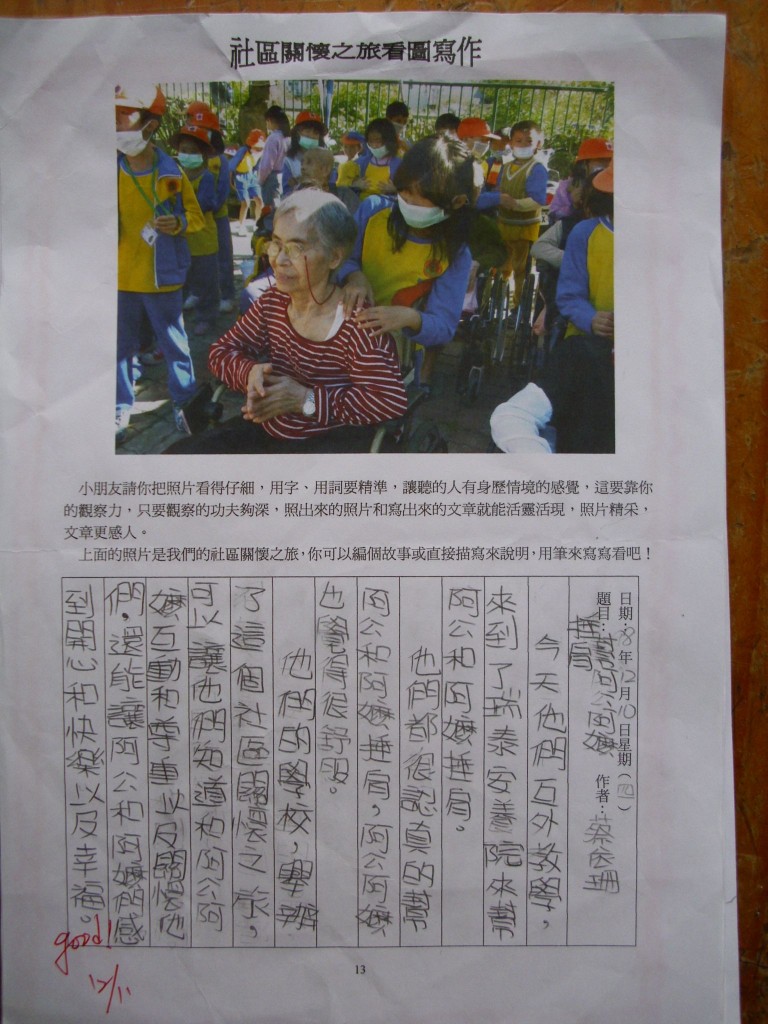 社區關懷之旅看圖寫作
小朋友請你把照片看得仔細，用字、用詞要精準，讓聽的人有身歷情境的感覺，這要靠你
的觀察力，只要觀察的功夫夠深，照出來的照片和寫出來的文章就能活靈活現，照片精采，
文章更感人。
上面的照片是我們的社區關懷之旅，你可以編個故事或直接描寫來說明，用筆來寫寫看吧！
日期：98年12月10日星期（四）
題目：幫阿公阿嬤捶肩 作者：蔡依珊
今天他們互外教學，
來到了瑞泰安養院來幫
阿公和阿嬤捶肩。
他們都很認真的幫
阿公和阿嬤捶肩，阿公阿嬤
也覺得很舒服。
他們的學校，舉辦
了這個社區關懷之旅，
可以讓他們知道和阿公阿
嬤互動和尊重以及關懷他
們，還能讓阿公和阿嬤們感
到開心和快樂以及幸福。
good!
12/11
13